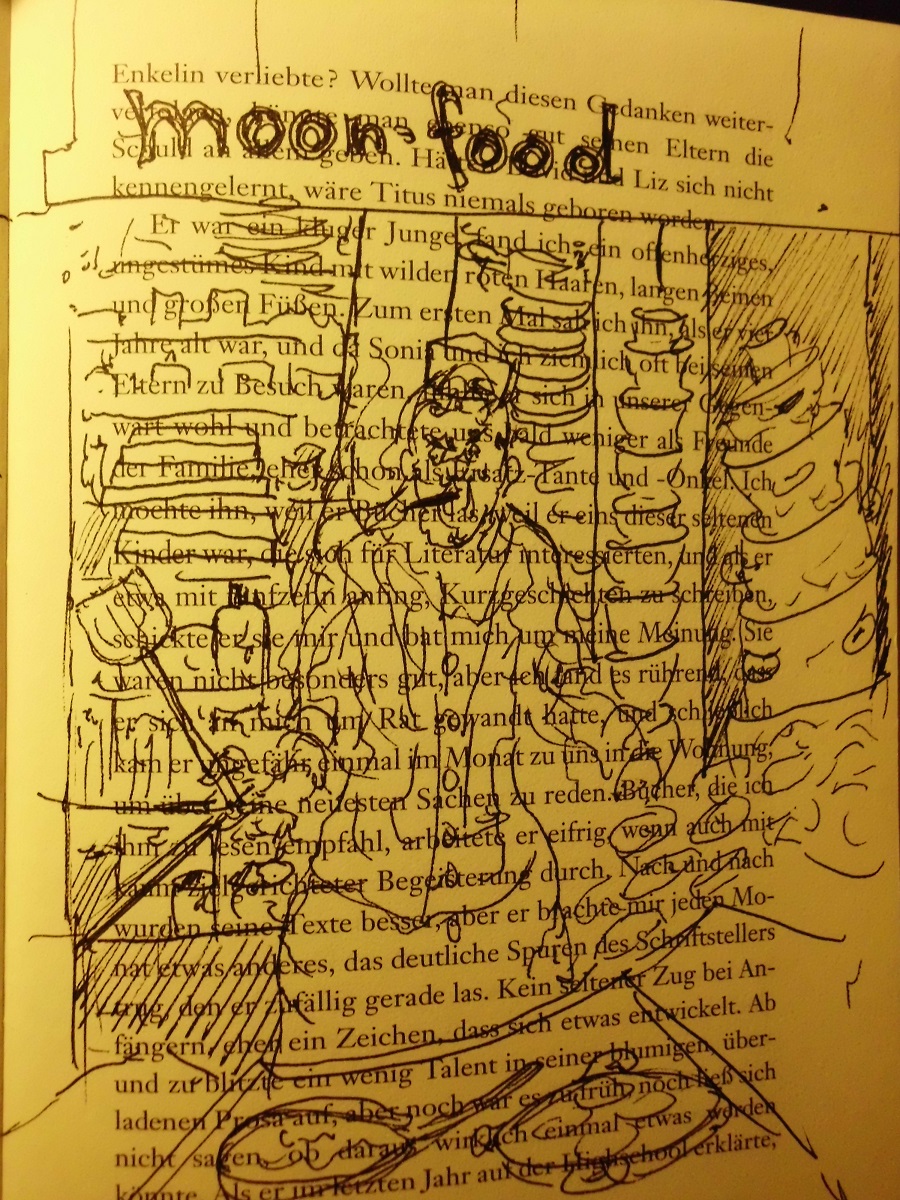 Enkelin verliebte? Wollte man diesen Gedanken weiter-
moon-food
verfolgen, könnte man ebenso gut seinen Eltern die
Schuld an allem geben. Hätten David und Liz sich nicht
kennengelernt, wäre Titus niemals geboren worden.
Er war ein kluger Junge, fand ich, ein offenherziges,
ungestümes Kind mit wilden roten Haaren, langen Beinen
und großen Füßen. Zum ersten Mal sah ich ihn, als er vier
Jahre alt war, und da Sonia und ich ziemlich oft bei seinen
Eltern zu Besuch waren, fühlte er sich in unserer Gegen-
wart wohl und betrachtete uns bald weniger als Freunde
der Familie, eher schon als Ersatz-Tante und -Onkel. Ich
mochte ihn, weil er Bücher las, weil er eins dieser seltenen
Kinder war, die sich für Literatur interessierten, und als er
etwa mit fünfzehn anfing, Kurzgeschichten zu schreiben,
schickte er sie mir und bat mich um meine Meinung. Sie
waren nicht besonders gut, aber ich fand es rührend, dass
er sich an mich um Rat gewandt hatte, und schließlich
kam er ungefähr einmal im Monat zu uns in die Wohnung,
um über seine neuesten Sachen zu reden. Bücher, die ich
ihm zu lesen empfahl, arbeitete er eifrig, wenn auch mit
kaum zielgerichteter Begeisterung durch. Nach und nach
wurden seine Texte besser, aber er brachte mir jeden Mo-
nat etwas anderes, das deutliche Spuren des Schriftstellers
trug, den er zufällig gerade las. Kein seltener Zug bei An-
fängern, eher ein Zeichen, dass sich etwas entwickelt. Ab
und zu blitzte ein wenig Talent in seiner blumigen, über-
ladenen Prosa auf, aber noch war es zu früh, noch ließ sich
nicht sagen, ob daraus wirklich einmal etwas werden
könnte. Als er im letzten Jahr auf der Highschool erklärte,